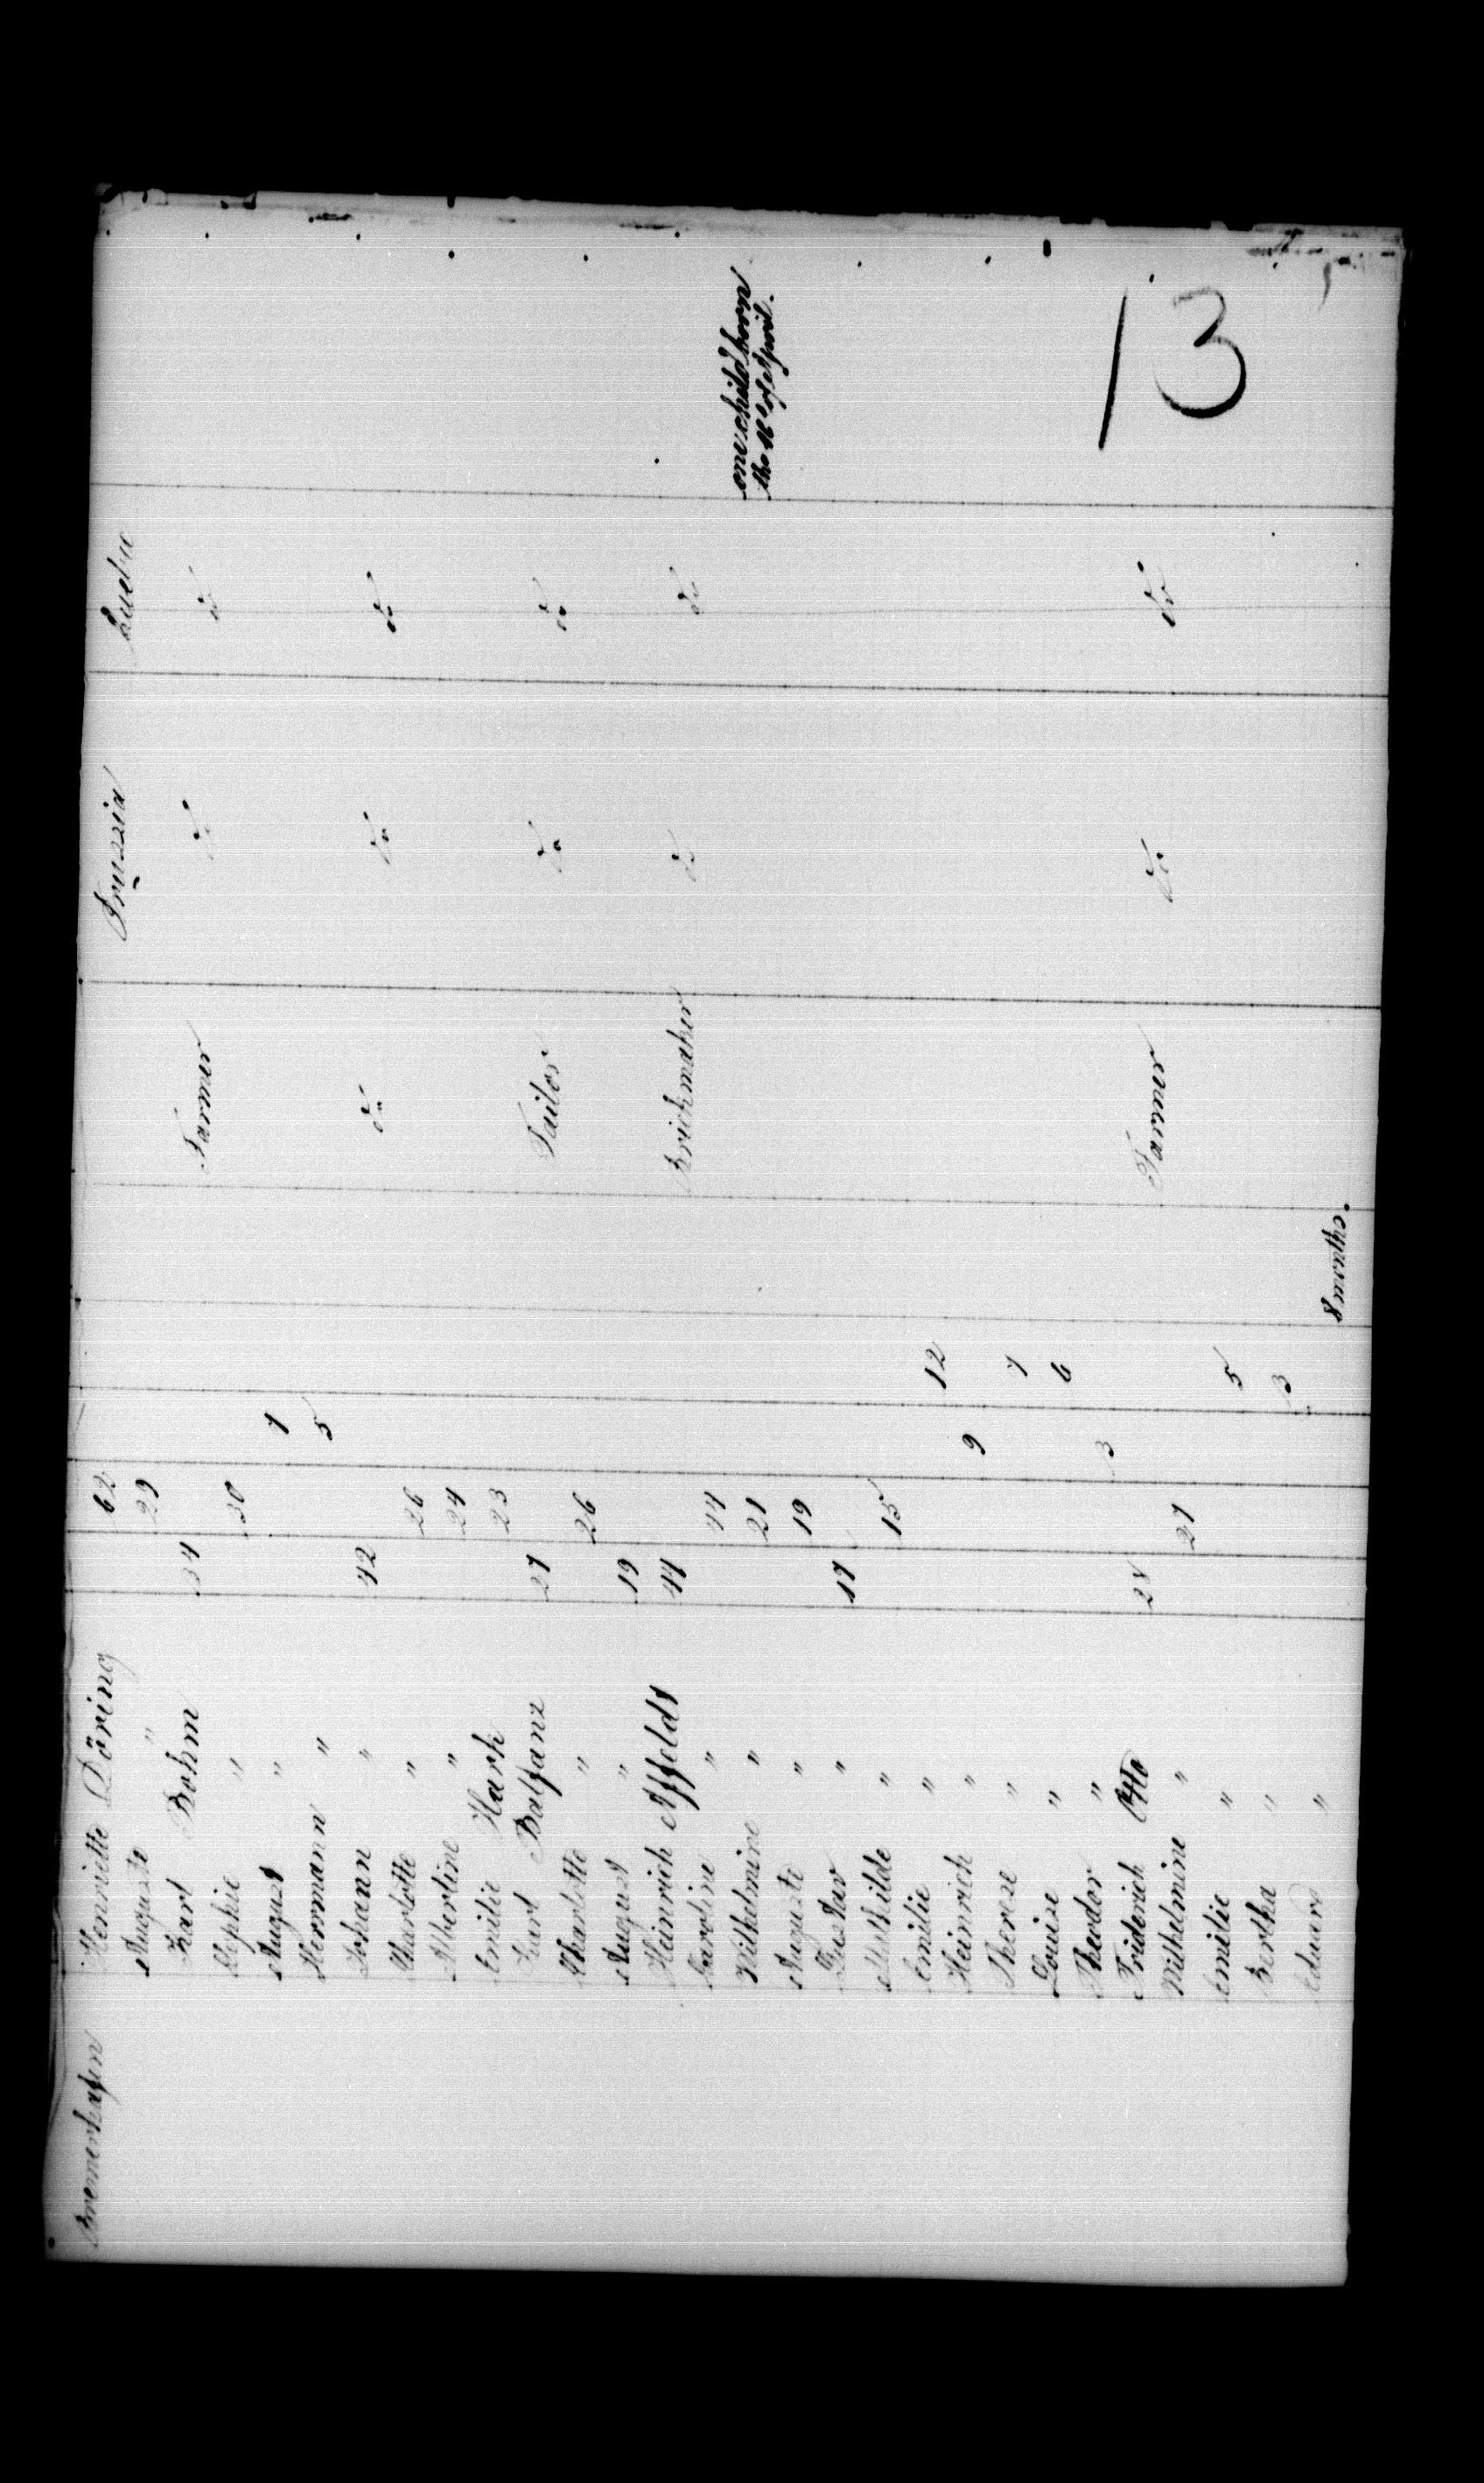 Bremerhafen Henriette Döring 62 Prussia
Auguste " 29
Karl Bohm 34 Farmer do do
Sophie " 30
August " 7
Hermann " 5
Johann " 42 do do do
Charlotte " 26
Albertine " 24
Emilie Hark 23
Karl Balfanz 27 Tailor do do
Charlotte " 26
August " 19
Heinrich Affeldt 44 Brickmaker do do
Caroline " 44
Wilhelmine " 21 one child born
the 16 of April.
Auguste " 19
Gustav " 17
Mathilde " 15
Emilie " 12
Heinrich " 9
Therese " 7
Louise " 6
Theodor " 3
Friderich Otto 28 Farmer do do
Wilhelmine " 27
Emilie " 5
Bertha " 3
Eduard " 8 months.
13